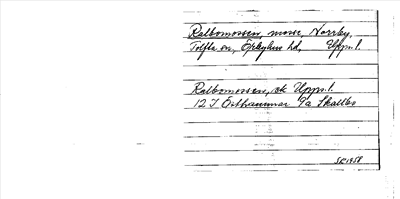 Ralbomossen, mosse, Norrby,
Tolfta sn, Örbyhus hd, Upps. l.
Ralbomossen, ek Upps. l.
12 I Östhammar 9a Skallbo
SK 1958